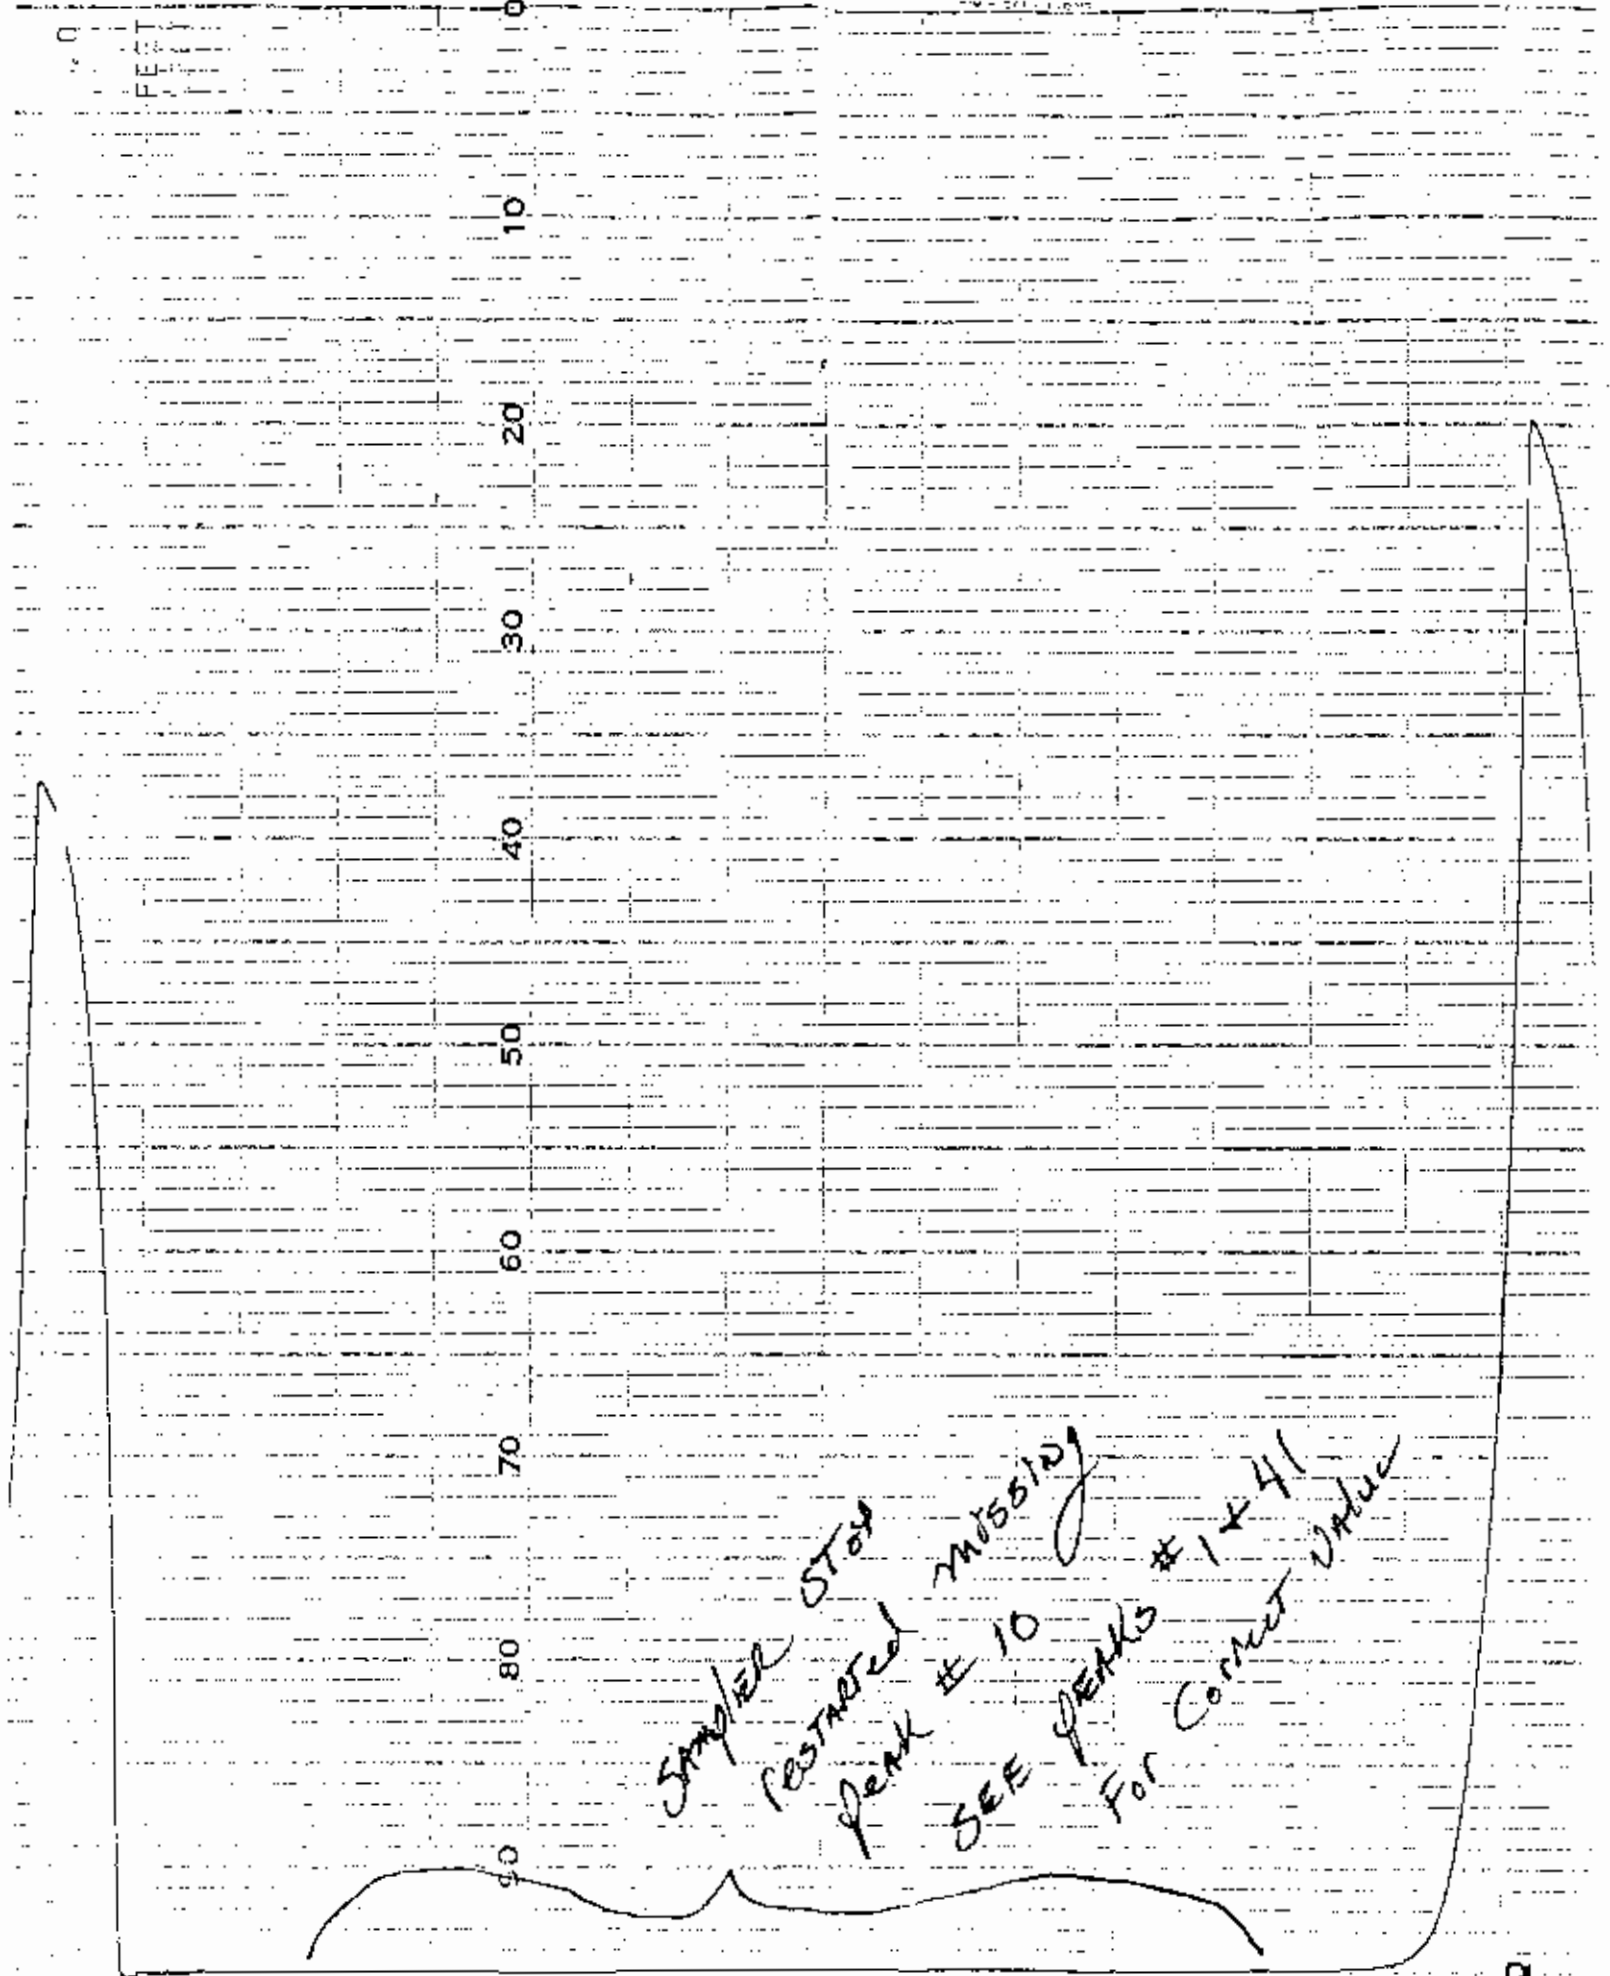 FEET
0
10
20
30
40
50
60
70
80
90
SAmplER STop
restARTed missing
peak # 10
SEE peAKs # 1 & 41
For Correct VAlue